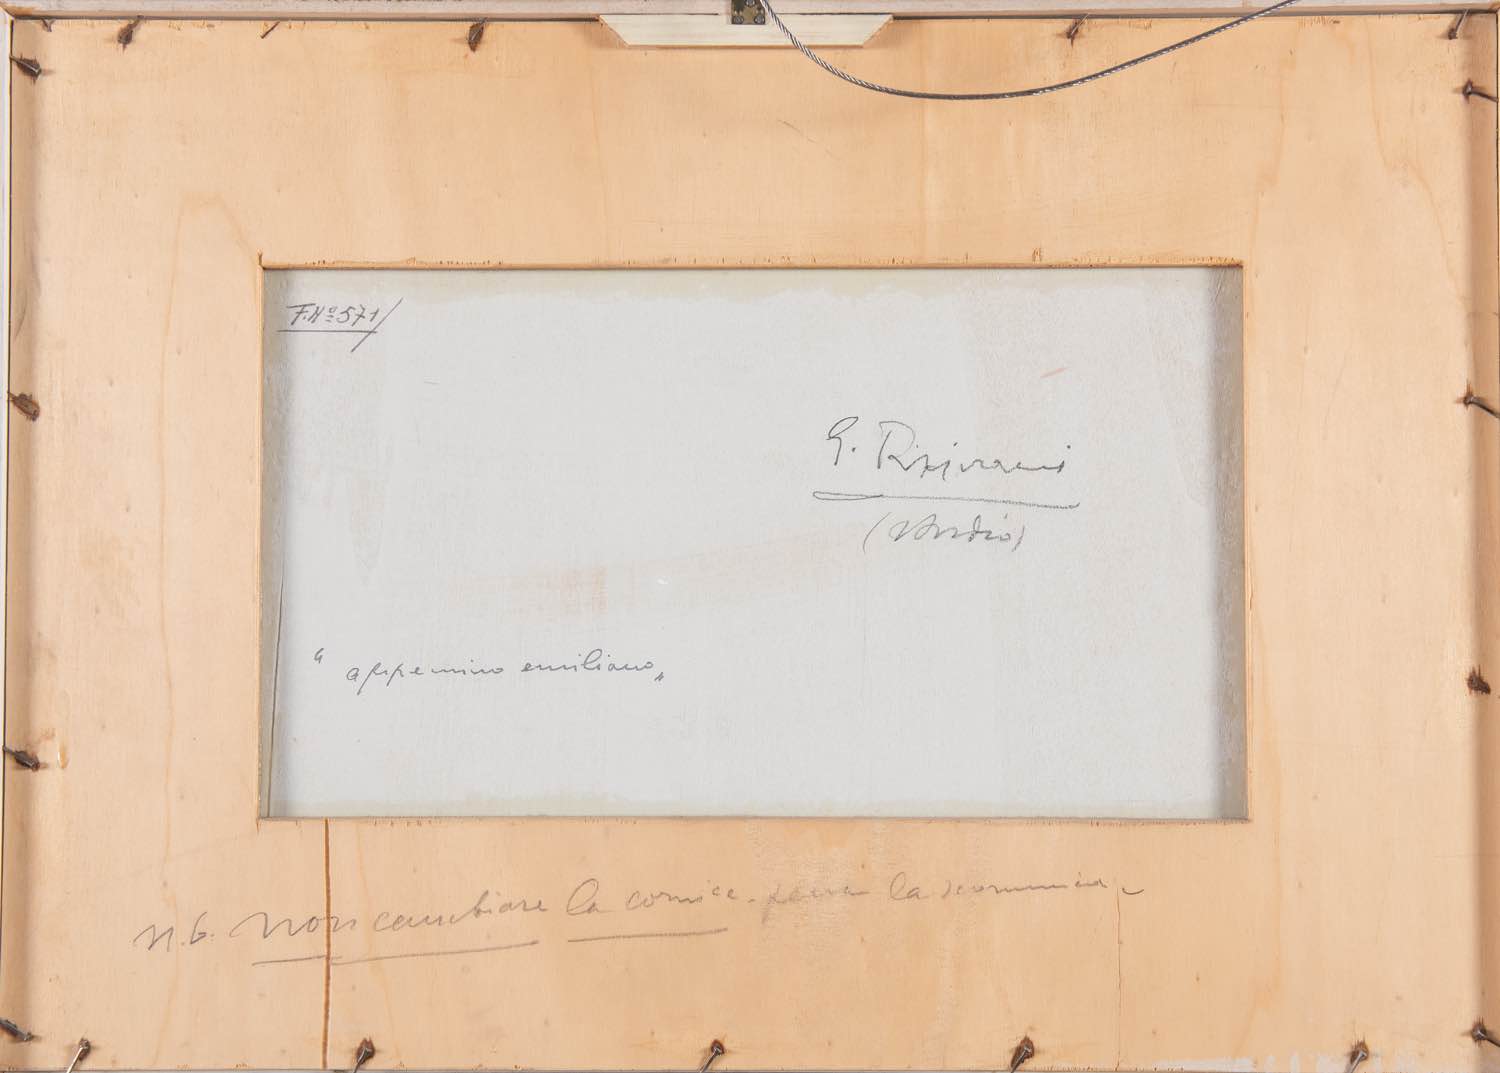 F. Nº 571/
G. Rizzi
(studio)
"appennino emiliano"
N.B. non cambiare la cornice. pena la scomunica